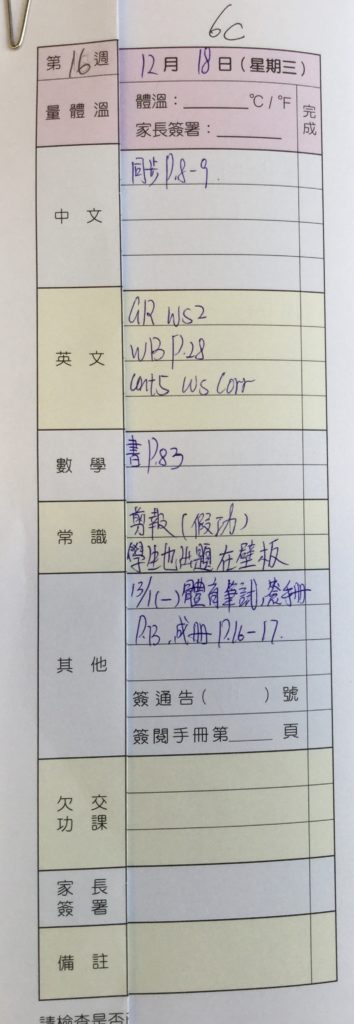 6C
第16週 12月 18日(星期三)
量體溫 體溫:______°C/°F 完成
家長簽署:______
中文 同步P.8-9.
英文 GR WS2
WB P.28
Unit5 WS Corr
數學 書P.83
常識 剪報(假功)
學生也出題在壁板
其他 13/1(一)體育筆試,簽手冊
P.13,成冊P.16-17.
簽通告( )號
簽閱手冊第____頁
欠交功課
家長簽署
備註
請檢查是否